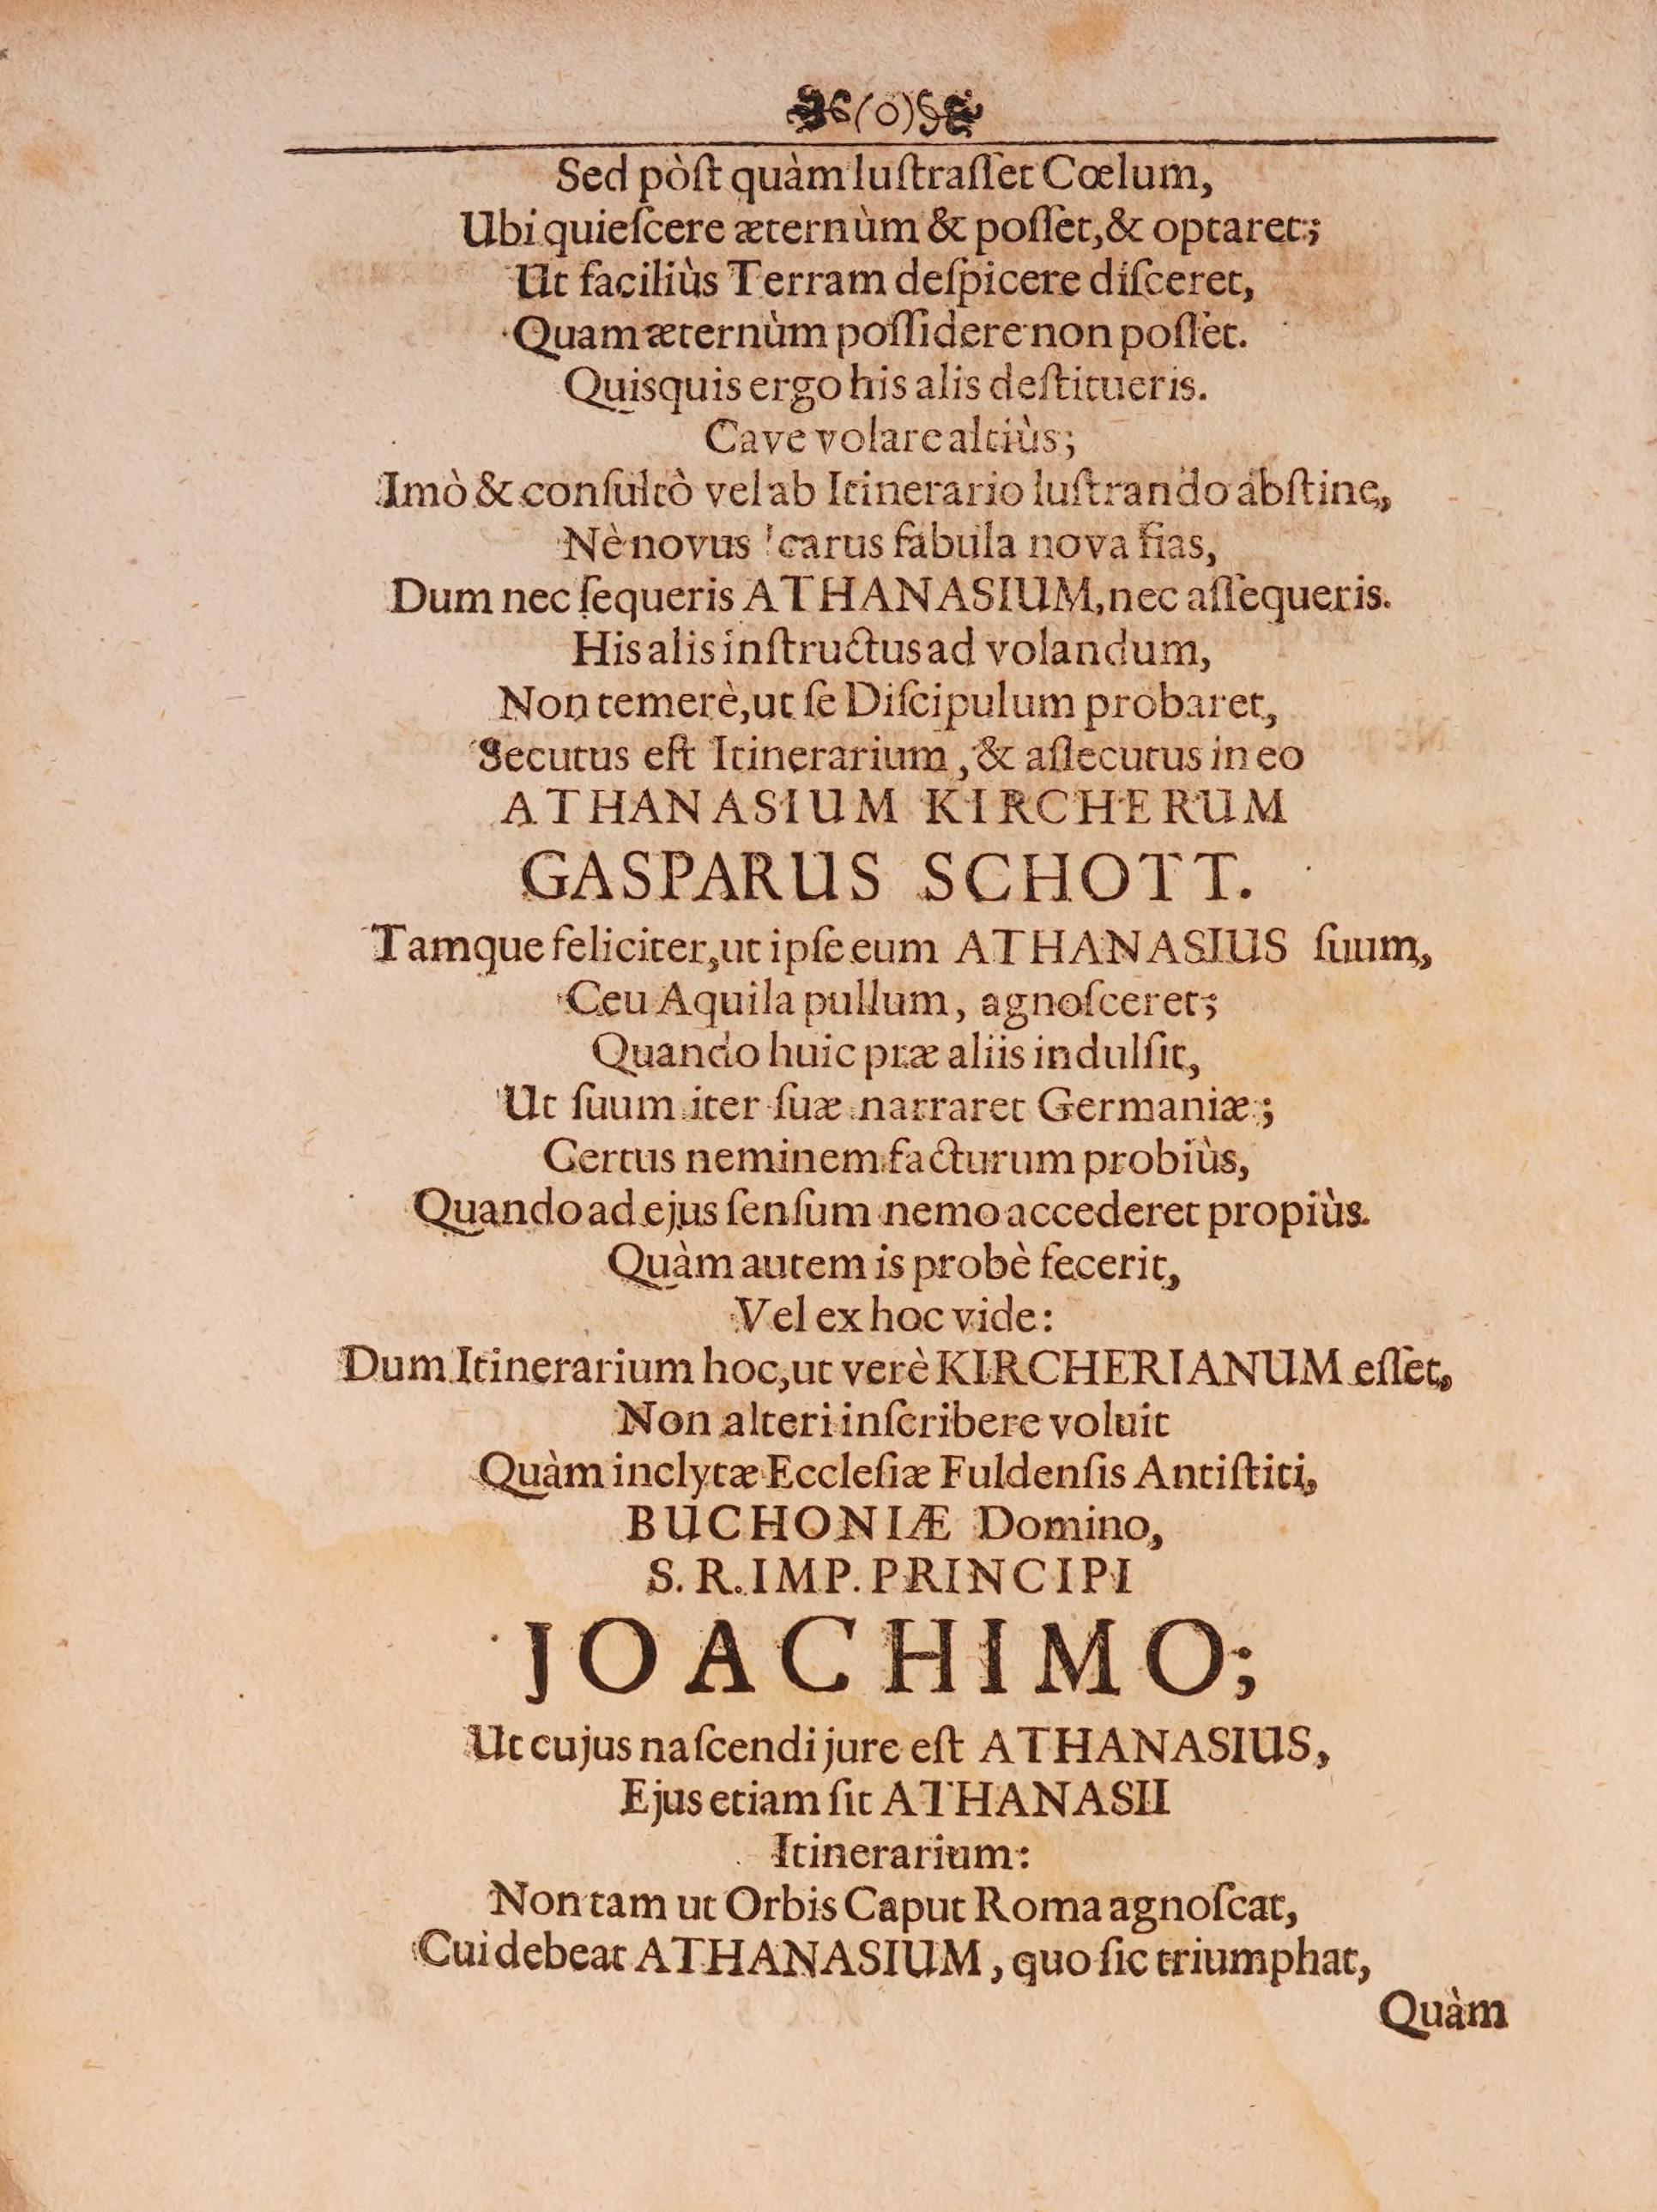 (o)
Sed pòſt quàm luſtraſſet Cœlum,
Ubi quieſcere æternùm & poſſet, & optaret;
Ut faciliùs Terram deſpicere diſceret,
Quam æternùm poſſidere non poſſet.
Quisquis ergo his alis deſtitueris.
Cave volare altiùs;
Imò & conſultò vel ab Itinerario luſtrando abſtine,
Nè novus Icarus fabula nova fias,
Dum nec ſequeris ATHANASIUM, nec aſſequeris.
His alis inſtructus ad volandum,
Non temerè, ut ſe Diſcipulum probaret,
Secutus eſt Itinerarium, & aſſecutus in eo
ATHANASIUM KIRCHERUM
GASPARUS SCHOTT.
Tamque feliciter, ut ipſe eum ATHANASIUS ſuum,
Ceu Aquila pullum, agnoſceret;
Quando huic præ aliis indulſit,
Ut ſuum iter ſuæ narraret Germaniæ;
Certus neminem facturum probiùs,
Quando ad ejus ſenſum nemo accederet propiùs.
Quàm autem is probè fecerit,
Vel ex hoc vide:
Dum Itinerarium hoc, ut verè KIRCHERIANUM eſſet,
Non alteri inſcribere voluit
Quàm inclytæ Eccleſiæ Fuldenſis Antiſtiti,
BUCHONIÆ Domino,
S. R. IMP. PRINCIPI
JOACHIMO;
Ut cujus naſcendi jure eſt ATHANASIUS,
Ejus etiam ſit ATHANASII
Itinerarium:
Non tam ut Orbis Caput Roma agnoſcat,
Cui debeat ATHANASIUM, quo ſic triumphat,
Quàm